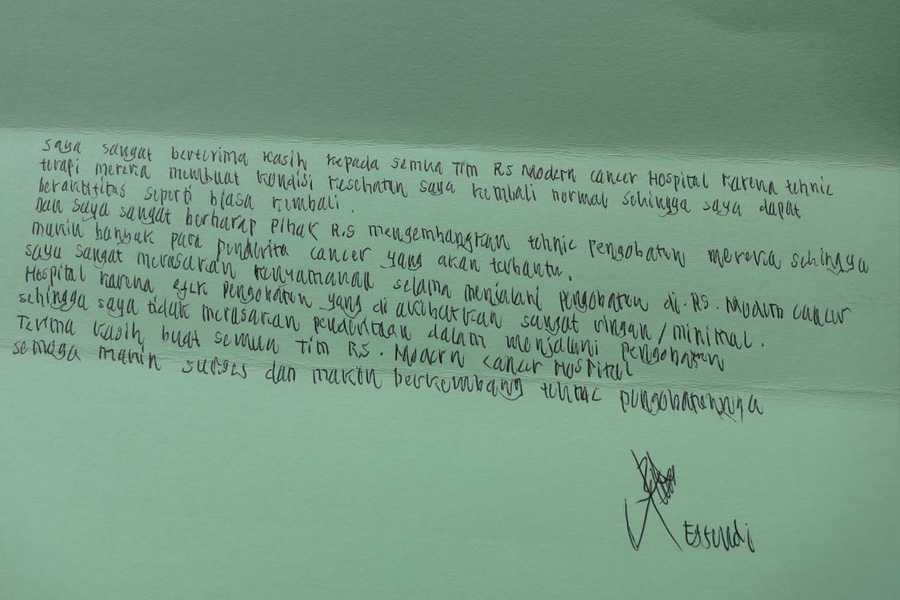 saya sangat berterima kasih kepada semua Tim RS Modern cancer Hospital karena tehnic
terapi mereka membuat kondisi kesehatan saya kembali normal sehingga saya dapat
beraktifitas seperti biasa kembali.
Dan saya sangat berharap pihak R.S mengembangkan tehnic pengobatan mereka sehingga
makin banyak para penderita cancer yang akan terbantu.
saya sangat merasakan kenyamanan selama menjalani pengobatan di.RS. Modern cancer
Hospital karena efek pengobatan yang di akibatkan sangat ringan/minimal.
sehingga saya tidak merasakan penderitaan dalam menjalani pengobatan
Terima kasih buat semua Tim RS. Modern cancer Hospital
semoga makin sukses dan makin berkembang tehnic pengobatannya